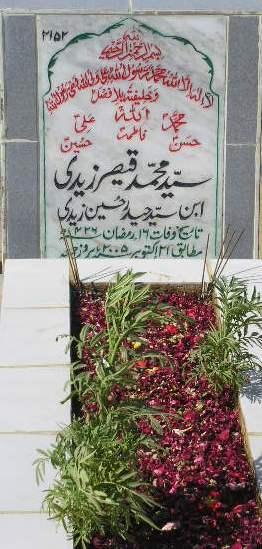 ۳۱۵۲
بسم اللہ الرحمن الرحیم
لا الہ الا اللہ محمد رسول اللہ علی ولی اللہ وصی رسول اللہ
وخلیفتہ بلا فصل
اللہ
محمد فاطمہ علی
حسن حسین
سید محمد قیصر زیدی
ابن سید حیدر حسین زیدی
تاریخ وفات ۱۶ رمضان ۱۴۲۶ھ
مطابق ۲۱ اکتوبر ۲۰۰۵ء بروز جمعہ